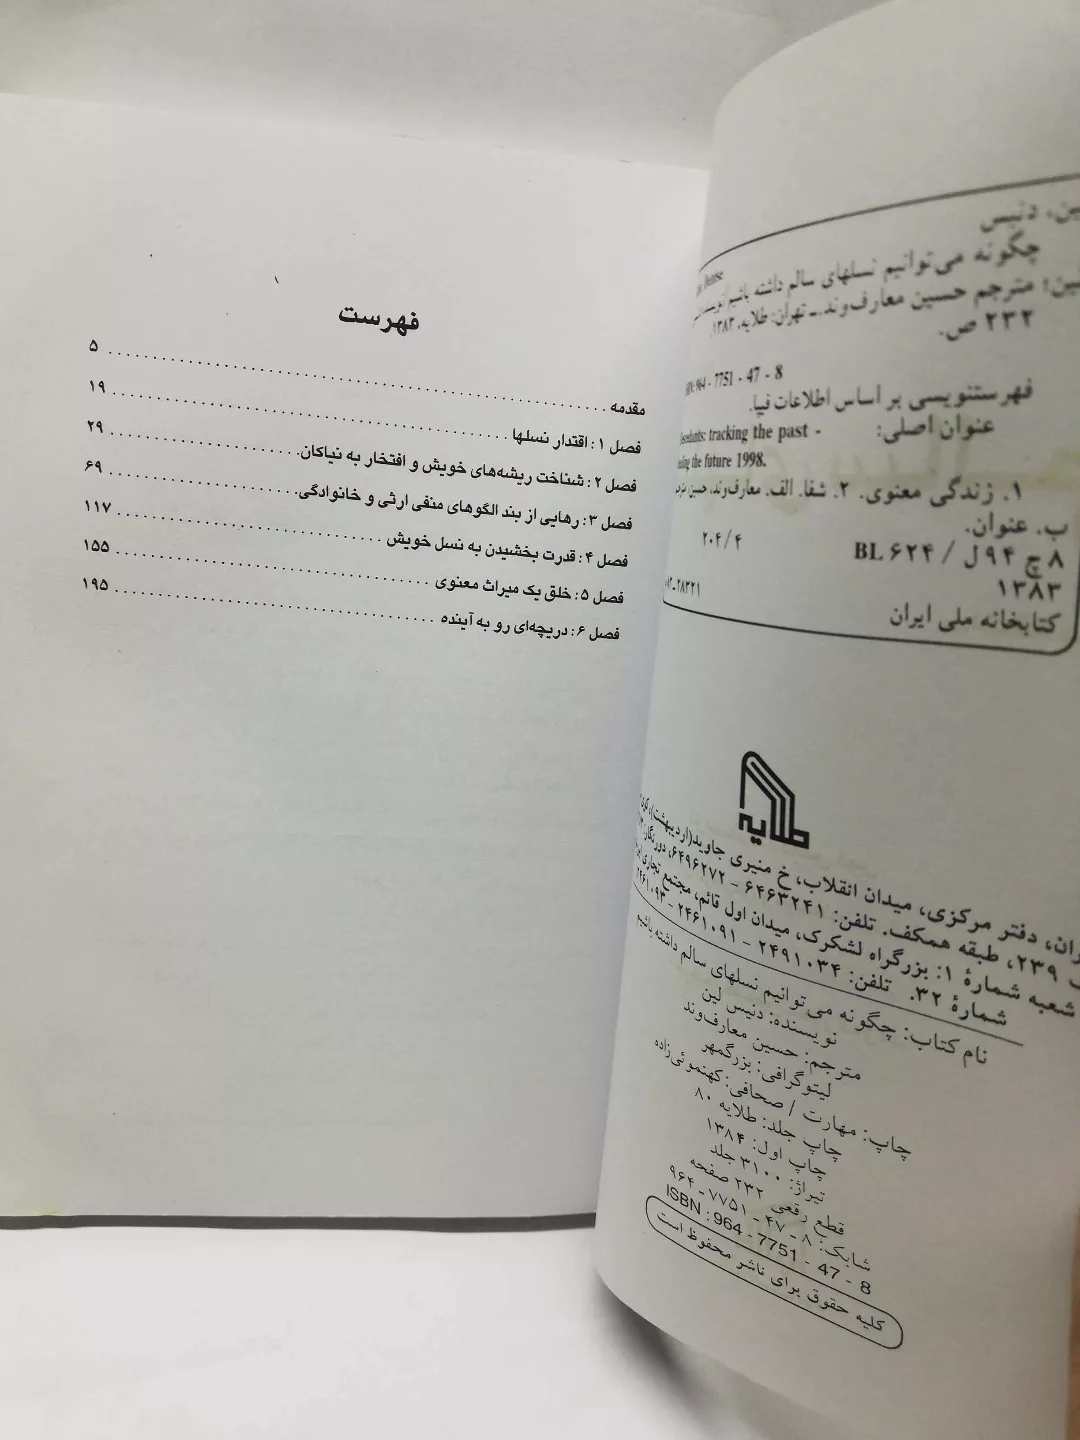 ین، دنیس
چگونه می‌توانیم نسلهای سالم داشته باشیم
مترجم حسین معارف‌وند.ـ تهران: طلایه، ۱۳۸۳.
۲۳۲ ص.
964 - 7751 - 47 - 8
فهرستنویسی بر اساس اطلاعات فیپا.
عنوان اصلی: tracking the past -
the future 1998.
۱. زندگی معنوی. ۲. شفا. الف. معارف‌وند، حسین
ب. عنوان.
۸چ ۹۴ل / BL ۶۲۴
۲۰۴/۴
۱۳۸۳
۲۸۳۲۱
کتابخانه ملی ایران
طلایه
دفتر مرکزی، میدان انقلاب، خ منیری جاوید(اردیبهشت)،
۲۳۹، طبقه همکف. تلفن: ۶۴۶۳۲۴۱ - ۶۴۹۶۲۷۲، دورنگار:
شعبه شمارهٔ ۱: بزرگراه لشکرک، میدان اول قائم، مجتمع تجاری
شمارهٔ ۳۲. تلفن: ۲۴۹۱۰۳۴ - ۲۴۶۱۰۹۱ - ۲۴۶۱۰۹۳
نام کتاب: چگونه می‌توانیم نسلهای سالم داشته باشیم
نویسنده: دنیس لین
مترجم: حسین معارف‌وند
لیتوگرافی: بزرگمهر
چاپ: مهارت / صحافی: کهنموئی‌زاده
چاپ جلد: طلایه ۸۰
چاپ اول: ۱۳۸۴
تیراژ: ۳۱۰۰ جلد
قطع رقعی ۲۳۲ صفحه
شابک: ۸ - ۴۷ - ۷۷۵۱ - ۹۶۴
ISBN : 964 - 7751 - 47 - 8
کلیه حقوق برای ناشر محفوظ است
فهرست
مقدمه ........ ۵
فصل ۱: اقتدار نسلها ........ ۱۹
فصل ۲: شناخت ریشه‌های خویش و افتخار به نیاکان. ........ ۲۹
فصل ۳: رهایی از بند الگوهای منفی ارثی و خانوادگی. ........ ۶۹
فصل ۴: قدرت بخشیدن به نسل خویش ........ ۱۱۷
فصل ۵: خلق یک میراث معنوی ........ ۱۵۵
فصل ۶: دریچه‌ای رو به آینده ........ ۱۹۵